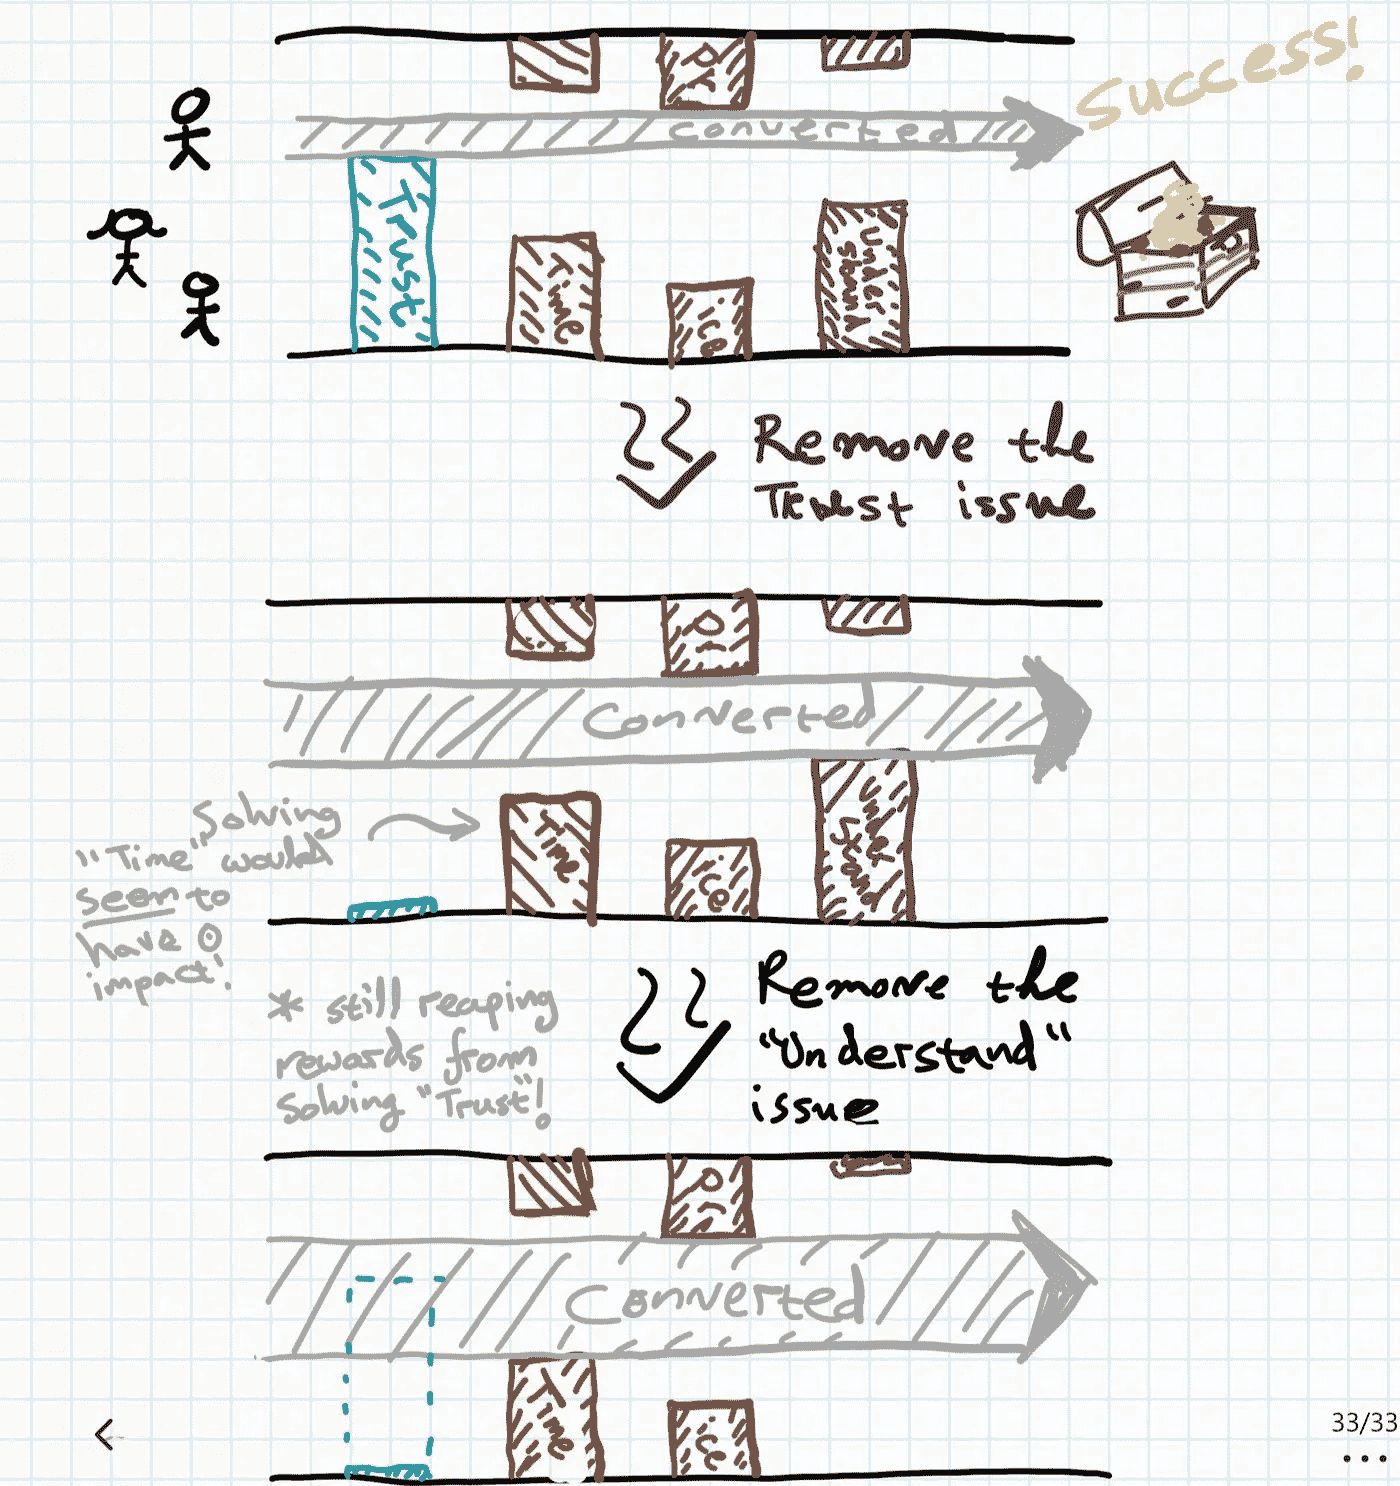 Success!
Pr
converted
Trust
Time
ice
Under
stand
Remove the
Trust issue
Pr
Converted
Solving
"Time" would
seem to
have 0
impact!
Time
ice
Under
stand
* still reaping
rewards from
solving "Trust"!
Remove the
"Understand"
issue
Pr
Converted
Time
ice
<
33/33
...